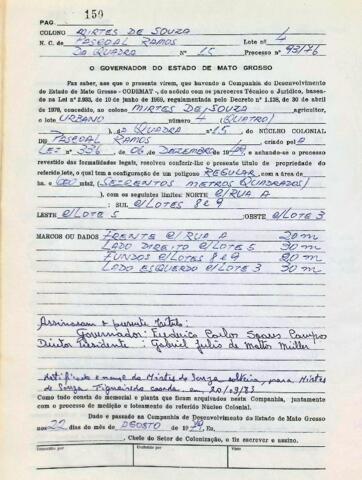 PAG. 159
COLONO MIRTES DE SOUZA Lote nº 4
N. C. de PASCOAL RAMOS
Da QUADRA Nº 15 Processo nº 93/76
O GOVERNADOR DO ESTADO DE MATO GROSSO
Faz saber, aos que o presente virem, que havendo a Companhia do Desenvolvimento
do Estado de Mato Grosso - CODEMAT -, de acordo com os pareceres Técnico e Jurídico, basea-
da na Lei nº 2.933, de 10 de junho de 1969, regulamentada pelo Decreto nº 1.138, de 30 de abril
de 1970, concedido, ao colono MIRTES DE SOUZA agricultor,
o lote URBANO número 4 (QUATRO)
), da QUADRA nº 15. do NÚCLEO COLONIAL
DE PASCOAL RAMOS criado pela
LEI Nº 336, de 06 de DEZEMBRO de 1949, e achando-se o processo
revestido das formalidades legais, resolveu conferir-lhe o presente título de propriedade do
referido lote, o qual tem a configuração de um polígono REGULAR, com a área de
ha. 600 mts2, (SEIZENTOS METROS QUADRADOS)
), com os seguintes limites: NORTE c/RUA A
: SUL c/LOTES 8 e 9
LESTE c/LOTE 5 :OESTE c/LOTE 3
MARCOS OU DADOS FRENTE c/RUA A 20 m
LADO DIREITO c/LOTE 5 30 m
FUNDOS c/LOTES 8 e 9 20 m
LADO ESQUERDO c/LOTE 3 30 m
Assinaram o presente título:
Governador: Frederico Carlos Soares Campos
Diretor Presidente : Gabriel Julio de Mattos Müller
Retificado o nome de Mirtes de Souza solteira, para Mirtes
de Souza Figueiredo casada. em 20/9/83.
Como tudo consta do memorial e planta que ficam arquivados nesta Companhia, juntamente
com o processo de medição e loteamento do referido Núcleo Colonial.
Dado e passado na Companhia de Desenvolvimento do Estado de Mato Grosso
aos 22 dias do mês de AGOSTO de 1979, Eu,
, Chefe do Setor de Colonização, o fiz escrever e assino.